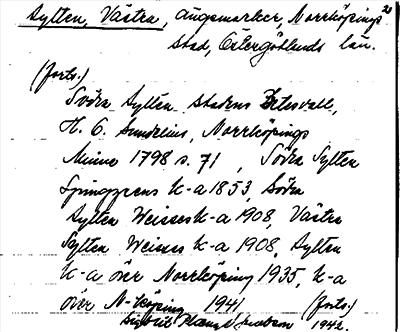 2
Sylten, Västra, ängsmarker, Norrköpings
stad, Östergötlands län.
(forts.)
Södra Sylten stadens Betesvall,
H. O. Sundelius, Norrköpings
Minne 1798 s. 71, Södra Sylten
Ljunggrens k-a 1853, Södra
Sylten Weisses k-a 1908, Västra
Sylten Weisses k-a 1908, Sylten
k-a över Norrköping 1935, k-a
över N-köping 1941 (forts.)
1942.